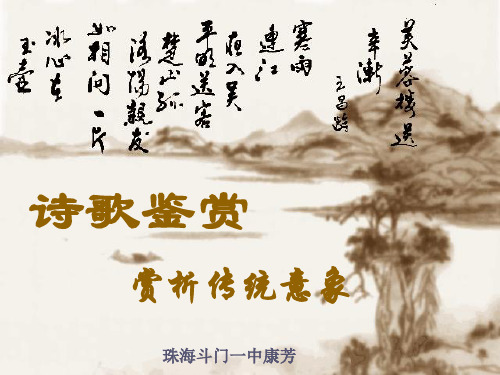 芙蓉楼送
辛渐
王昌龄
寒雨
連江
夜入吴
平明送客
楚山孤
洛陽親友
如相问一片
冰心在
玉壶
诗歌鉴赏
赏析传统意象
珠海斗门一中康芳